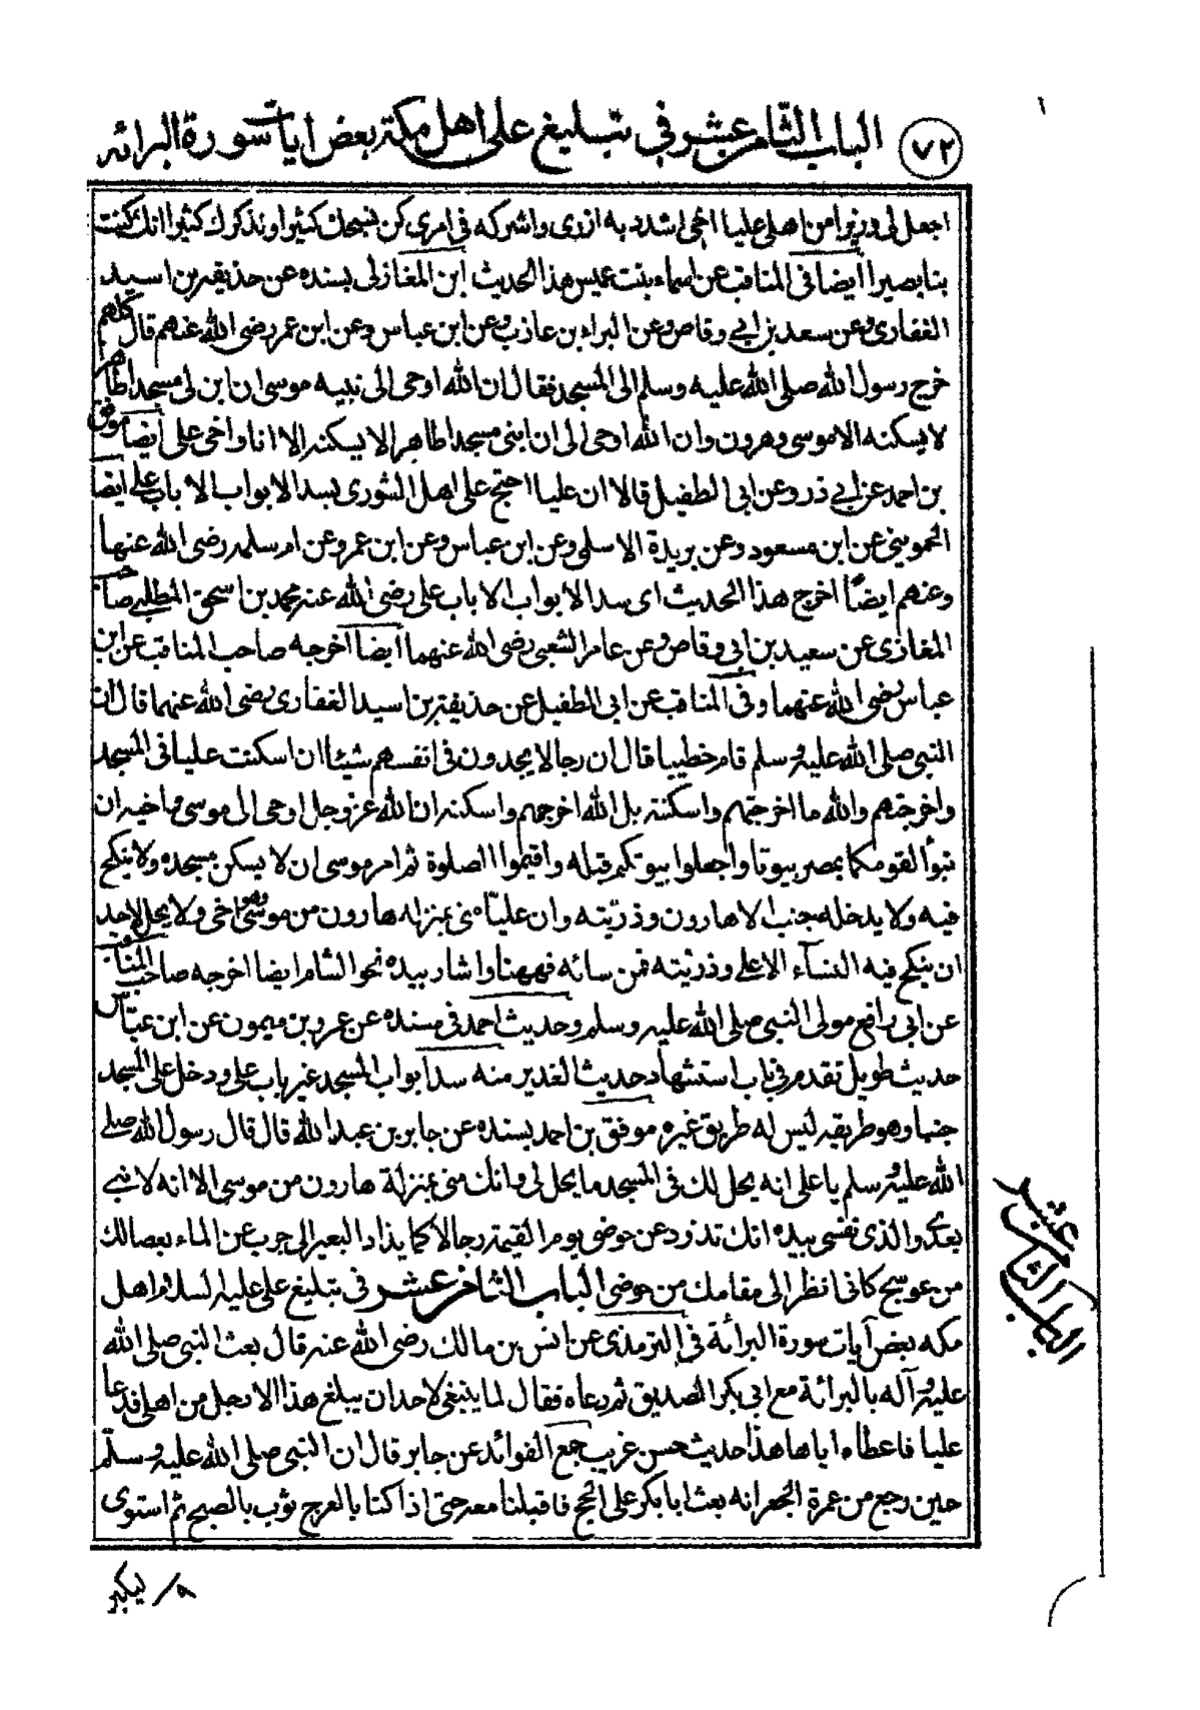 ٧٢
الباب الثامن عشر في تبليغ على اهل مكة بعض ايات سورة البرائه
اجعل لى وزيرا من اهلى عليا اخى اشدد به ازرى واشركه فى امرى كى نسبحك كثيرا ونذكرك كثيرا انك كنت
بنا بصيرا ايضا فى المناقب عن اسماء بنت عميس هذا الحديث ابن المغازلى بسنده عن حذيفة بن اسيد
الغفارى وعن سعد بن ابى وقاص وعن البراء بن عازب وعن ابن عباس وعن ابن عمر رضى الله عنهم قال كلهم
خرج رسول الله صلى الله عليه وسلم الى المسجد فقال ان الله اوحى الى نبيه موسى ان ابن لى مسجدا طاهرا
لا يسكنه الا موسى وهرون وان الله اوحى الى ان ابنى مسجدا طاهرا لا يسكنه الا انا واخى على ايضا موفق
بن احمد عن ابى ذر وعن ابى الطفيل قالا ان عليا احتج على اهل الشورى بسد الابواب الا باب على ايضا
الحموينى عن ابن مسعود وعن بريدة الاسلمى وعن ابن عباس وعن ابن عمر وعن ام سلمه رضى الله عنها
وعنهم ايضًا اخرج هذا الحديث اى سد الابواب الا باب على رضى الله عنه محمد بن اسحق المطلبى صاحب
المغازى عن سعيد بن ابى وقاص وعن عامر الشعبى رضى الله عنهما ايضا اخرجه صاحب المناقب عن ابن
عباس رضى الله عنهما وفى المناقب عن ابى الطفيل عن حذيفة بن اسيد الغفارى رضى الله عنهما قال ان
النبى صلى الله عليه وسلم قام خطيبا قال ان رجالا يجدون فى انفسهم شيئا ان اسكنت عليا فى المسجد
واخرجتهم والله ما اخرجتهم واسكنته بل الله اخرجهم واسكنه ان الله عز وجل اوحى الى موسى واخيه ان
تبوأ القومكما بمصر بيوتا واجعلوا بيوتكم قبله واقيموا الصلوة ثم امر موسى ان لا يسكن مسجده ولا ينكح
فيه ولا يدخله جنب الا هارون وذريّته وان عليّا منى بمنزله هارون من موسى وهو اخى ولا يحل لاحد
ان ينكح فيه النسآء الا على وذريّته فمن سائه فههنا واشار بيده نحو الشام ايضا اخرجه صاحب المناقب
عن ابى رافع مولى النبى صلى الله عليه وسلم وحديث احمد فى مسنده عن عمرو بن ميمون عن ابن عبّاس
حديث طويل تقدم فى باب استشهاد حديث الغدير منه سد ابواب المسجد غير باب على ودخل على المسجد
جنبا وهو طريقه ليس له طريق غيره موفق بن احمد بسنده عن جابر بن عبد الله قال قال رسول الله صلى
الله عليه وسلم يا على انه يحل لك فى المسجد ما يحل لى وانك منى بمنزلة هارون من موسى الا انه لا نبى
بعدى والذى نفسى بيده انك تذود عن حوضى يوم القيمة رجالا كما يذاد البعير الجرب عن الماء بعصا لك
من عوسج كانى انظر الى مقامك من حوضى الباب الثامن عشر فى تبليغ على عليه السلام اهل
مكه بعض آيات سورة البرائة فى الترمذى عن انس بن مالك رضى الله عنه قال بعث النبى صلى الله
عليه وآله بالبرائة مع ابى بكر الصديق ثم دعاه فقال لما ينبغى لاحد ان يبلغ هذا الا رجل من اهلى فدعا
عليا فاعطاه اياها هذا حديث حسن غريب جمع الفوائد عن جابر قال ان النبى صلى الله عليه وسلّم
حين رجع من عمرة الجعرانه بعث ابا بكر على الحج فاقبلنا معه حتى اذا كنا بالعرج ثوب بالصبح ثم استوى
ليكبر
الباب الثامن عشر